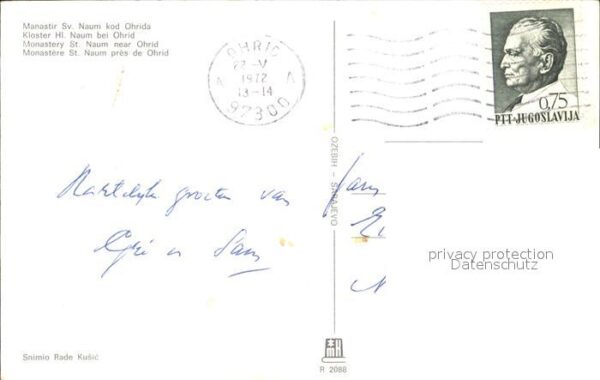 Manastir Sv. Naum kod Ohrida
Kloster Hl. Naum bei Ohrid
Monastery St. Naum near Ohrid
Monastère St. Naum près de Ohrid
OHRID
22-V
1972
13-14
97300
0,75
PTT-JUGOSLAVIJA
OZEBIH – SARAJEVO
Hartelijke groeten van
en
privacy protection
Datenschutz
Snimio Rade Kušić
R 2088